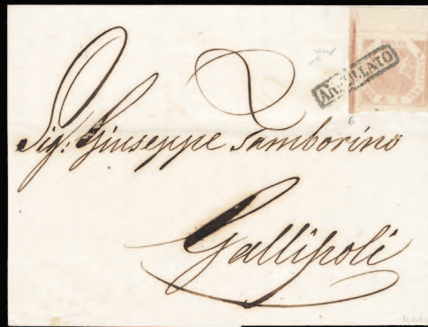 ANNULLATO
Sig: Giuseppe Tamborino
Gallipoli